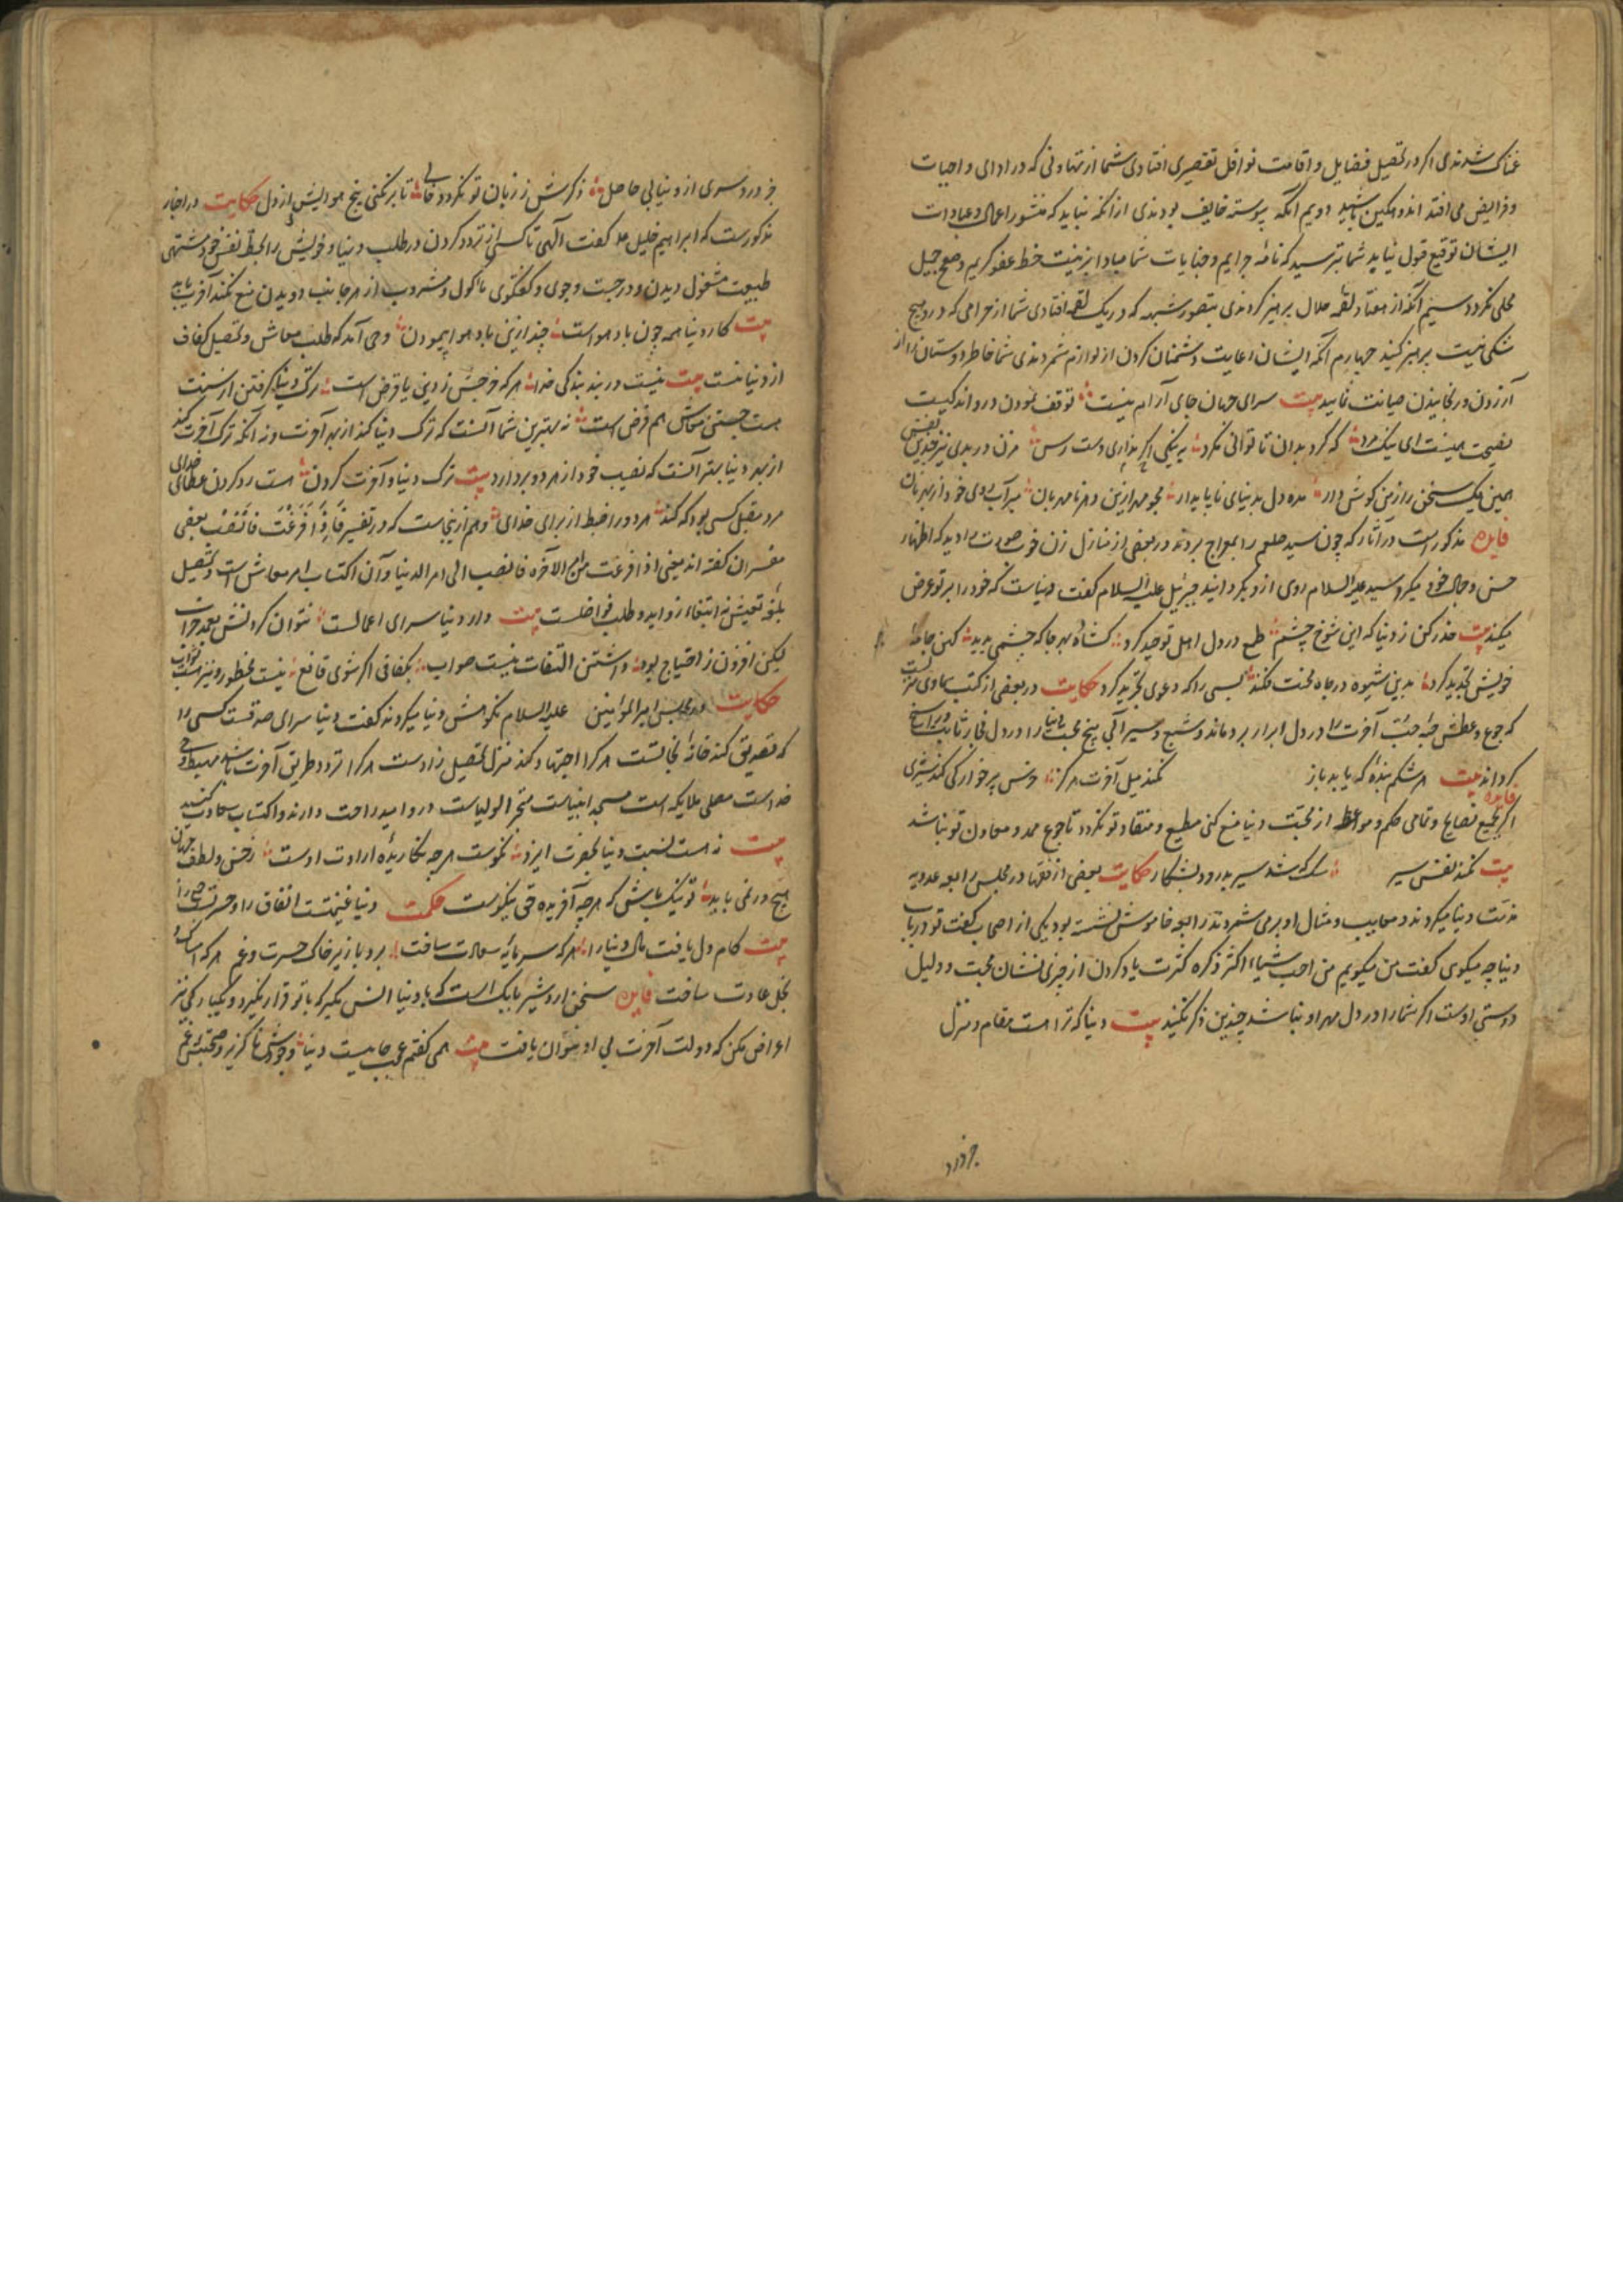 غمناک شدندی اگر در تحصیل فضایل و اقامت نوافل تقصیری افتادی شما از تهاونی که در ادای واجبات
و فرایض می افتد اندوهگین باشید دویم آنکه پیوسته خایف بودندی از آنکه نباید که منشور اعمال و عبادات
ایشان توقیع قبول نیابد شما بترسید که نامه جرایم و جنایات شما مبادا بزینت خط عفو کریم و صفح جمیل
محلی نگردد سیم آنکه از معتاد لقمه حلال پرهیز کردندی بتصور شبهه که در یک لقمه افتادی شما از حرامی که در و هیچ
شکی نیست پرهیز کنید چهارم آنکه ایشان رعایت دشمنان کردن از لوازم شمردندی شما خاطر دوستان را از
آزردن و رنجانیدن صیانت نمایید بیت سرای جهان جای آرام نیست توقف نمودن درو اند کیست
نصیحت همینست ای نیک مرد که گرد بدان تا توانی مگرد به نیکی اگر نداری دست رس مزن در بدی نیز چندین نفس
همین یک سخن را ز من گوش دار مده دل بدنیای ناپایدار مجو مهر ازین دهر نامهربان مبر آب روی خود از بهر نان
فایده مذکور است در آثار که چون سید صلعم را بمعراج بردند در بعضی از منازل زن خوب صورت را دید که اظهار
حسن و جمال خود میکرد سید علیه السلام روی ازو بگردانید جبرئیل علیه السلام گفت دنیاست که خود را بر تو عرض
میکند بیت حذر کن ز دنیا که این شوخ چشم طمع در دل اهل توحید کرد گشاده بهر جا که چشمی بدید کهن جامه
خویش تجدید کرد بدین شیوه در چاه محنت فکند بسی را که دعوی تجرید کرد حکایت در بعضی از کتب سماوی مز
که جوع و عطش حبه محبت آخرت را در دل ابرار برویاند و شبع و سیرابی بیخ محبت دنیا را در دل فجار ثابت و راسخ
گرداند بیت هر شکم بنده که یابد باز نکند میل آخرت هرگز وحس پرخوارگی کند
فایده اگر بجمیع نصایح و تمامی حکم و مواعظ از محبت دنیا منع کنی مطیع و منقاد تو نگردد تا جوع ممد و معاون تو نباشد
بیت نکند نفس سیر سگ که شد سیر بدرود بشکار حکایت بعضی از فقها در مجلس رابعه عدویه
مذمت دنیا میکردند و معایب و مثال او بر می شمردند رابعه خاموش نشسته بود یکی از اصحاب گفت تو در باب
دنیا چه میگوی گفت من میگویم من احب شیئا اکثر ذکره کثرت یاد کردن از چیزی نشان محبت و دلیل
دوستی اوست اگر شما را در دل مهر او نباشد چندین ذکر نکنید بیت دنیا که ترا است مقام و منزل
جز درد
جز درد سری ازو نیابی حاصل ذکرش ز زبان تو نگردد فانی تا برنکنی بیخ هوایش از دل حکایت در اخبار
مذکورست که ابراهیم خلیل ع گفت الهی تا کسانی ز تردد کردن در طلب دنیا و خویش را بحظ نفس خود و مشتهی
طبیعت مشغول دیدن و در جست و جوی و گفتگوی ماکول و مشروب از هر جانب دویدن منع نکند آخر یابد
بیت کار دنیا همه چون باد هواست چند ازین باد هوا پیمودن وحی آمد که طلب معاش و تحصیل کفاف
از دنیا نیست بیت نیست در بند بندگی خدا هر که خرجش ز دین یا قرض است ترک دنیا گرفتن ار سنت
هست جستن معاش هم فرض است نه بهترین شما آنست که ترک دنیا کند از بهر آخرت و نه آنکه ترک آخرت کند
از بهر دنیا بهتر آنست که نصیب خود از هر دو بردارد بیت ترک دنیا و آخرت کردن هست رد کردن عطای خدای
مرد مقبل کسی بود که کند هر دو را ضبط از برای خدای و هم ازینجاست که در تفسیر فاذا فرغت فانصب بعضی
مفسران گفته اند یعنی اذا فرغت من امر الاخره فانصب الی امر الدنیا و آن اکتساب امر معاش است و تحصیل
بلغه تعیش نه ابتغاء زواید و طلب فواضلست بیت دار دنیا سرای اعمالست نتوان کردنش بعمد خراب
لیکن افزون ز احتیاج بود داشتن التفات نیست صواب بکفافی اگر شوی قانع نیست محظور و نیز هست ثواب
حکایت در مجلس امیرالمومنین علیه السلام نکوهش دنیا میکردند گفت دنیا سرای صدقست کسی را
که تصدیق کند خانه نجاتست هر کرا اجتهاد کند منزل تحصیل زادست هر کرا تردد طریق آخرت باشد مهبط وحی
خداست مصلی ملایکه است مسجد انبیاست متجر اولیاست درو امید راحت دارند و اکتساب سعادت کنید
بیت زهست نسبت دنیا بحضرت ایزد نکوست هرچه نگاریده ارادت اوست ز حسن و لطف جهان
هیچ در نمی یابد تو نیک باش که هرچه آفریده حق نیکوست حکمت دنیا غنیمتست انفاق را و حسرتست
بیت کام دل یافت مال دنیا را هر که سرمایه سعادت ساخت برد با زیر خاک حسرت و غم هر که امساک و
بخل عادت ساخت فایده سخن اردشیر بابک است که با دنیا انس مگیر که با تو قرار نگیرد و یکبارگی نیز
اعراض مکن که دولت آخرت بی او نتوان یافت بیت همی گفتم عجب جاییست دنیا وجودش ناگزیر و صحبتش غم